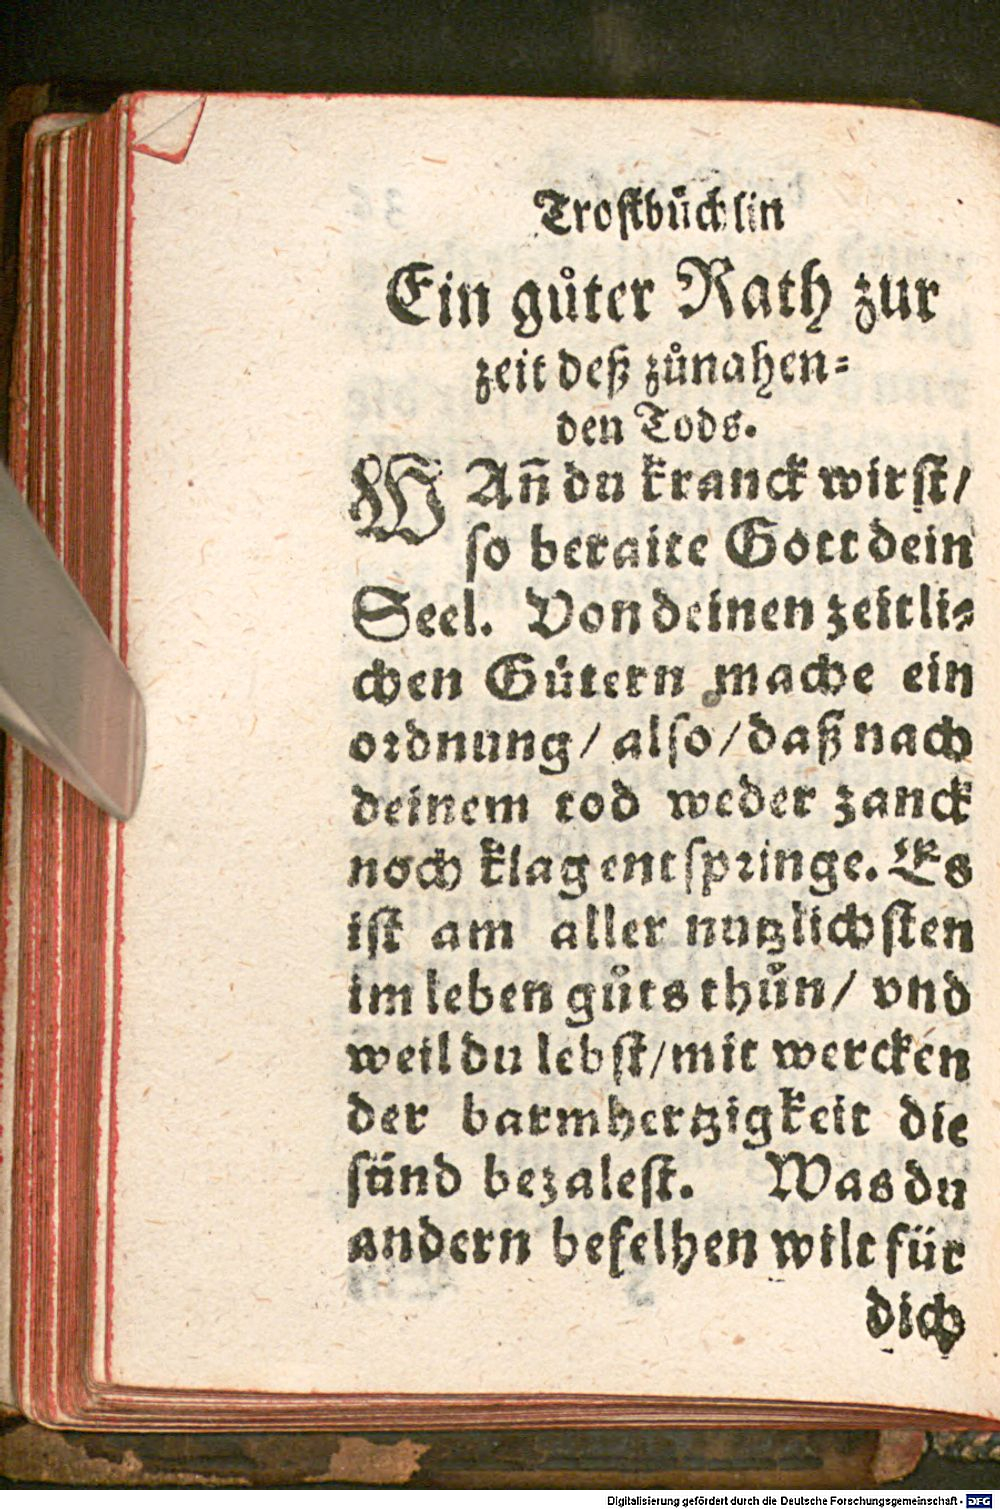 Trostbuͤchlin
Ein guͦter Rath zur
zeit deß zuͦnahen⸗
den Tods.
WAñ du kranck wirst/
so beraite Gott dein
Seel. Von deinen zeitli⸗
chen Gütern mache ein
ordnung/ also/ daß nach
deinem tod weder zanck
noch klag entspringe. Es
ist am aller nutzlichsten
im leben guͦts thuͦn/ vnd
weil du lebst/ mit wercken
der barmhertzigkeit die
sünd bezalest. Was du
andern befelhen wilt für
dich
Digitalisierung gefördert durch die Deutsche Forschungsgemeinschaft - DFG